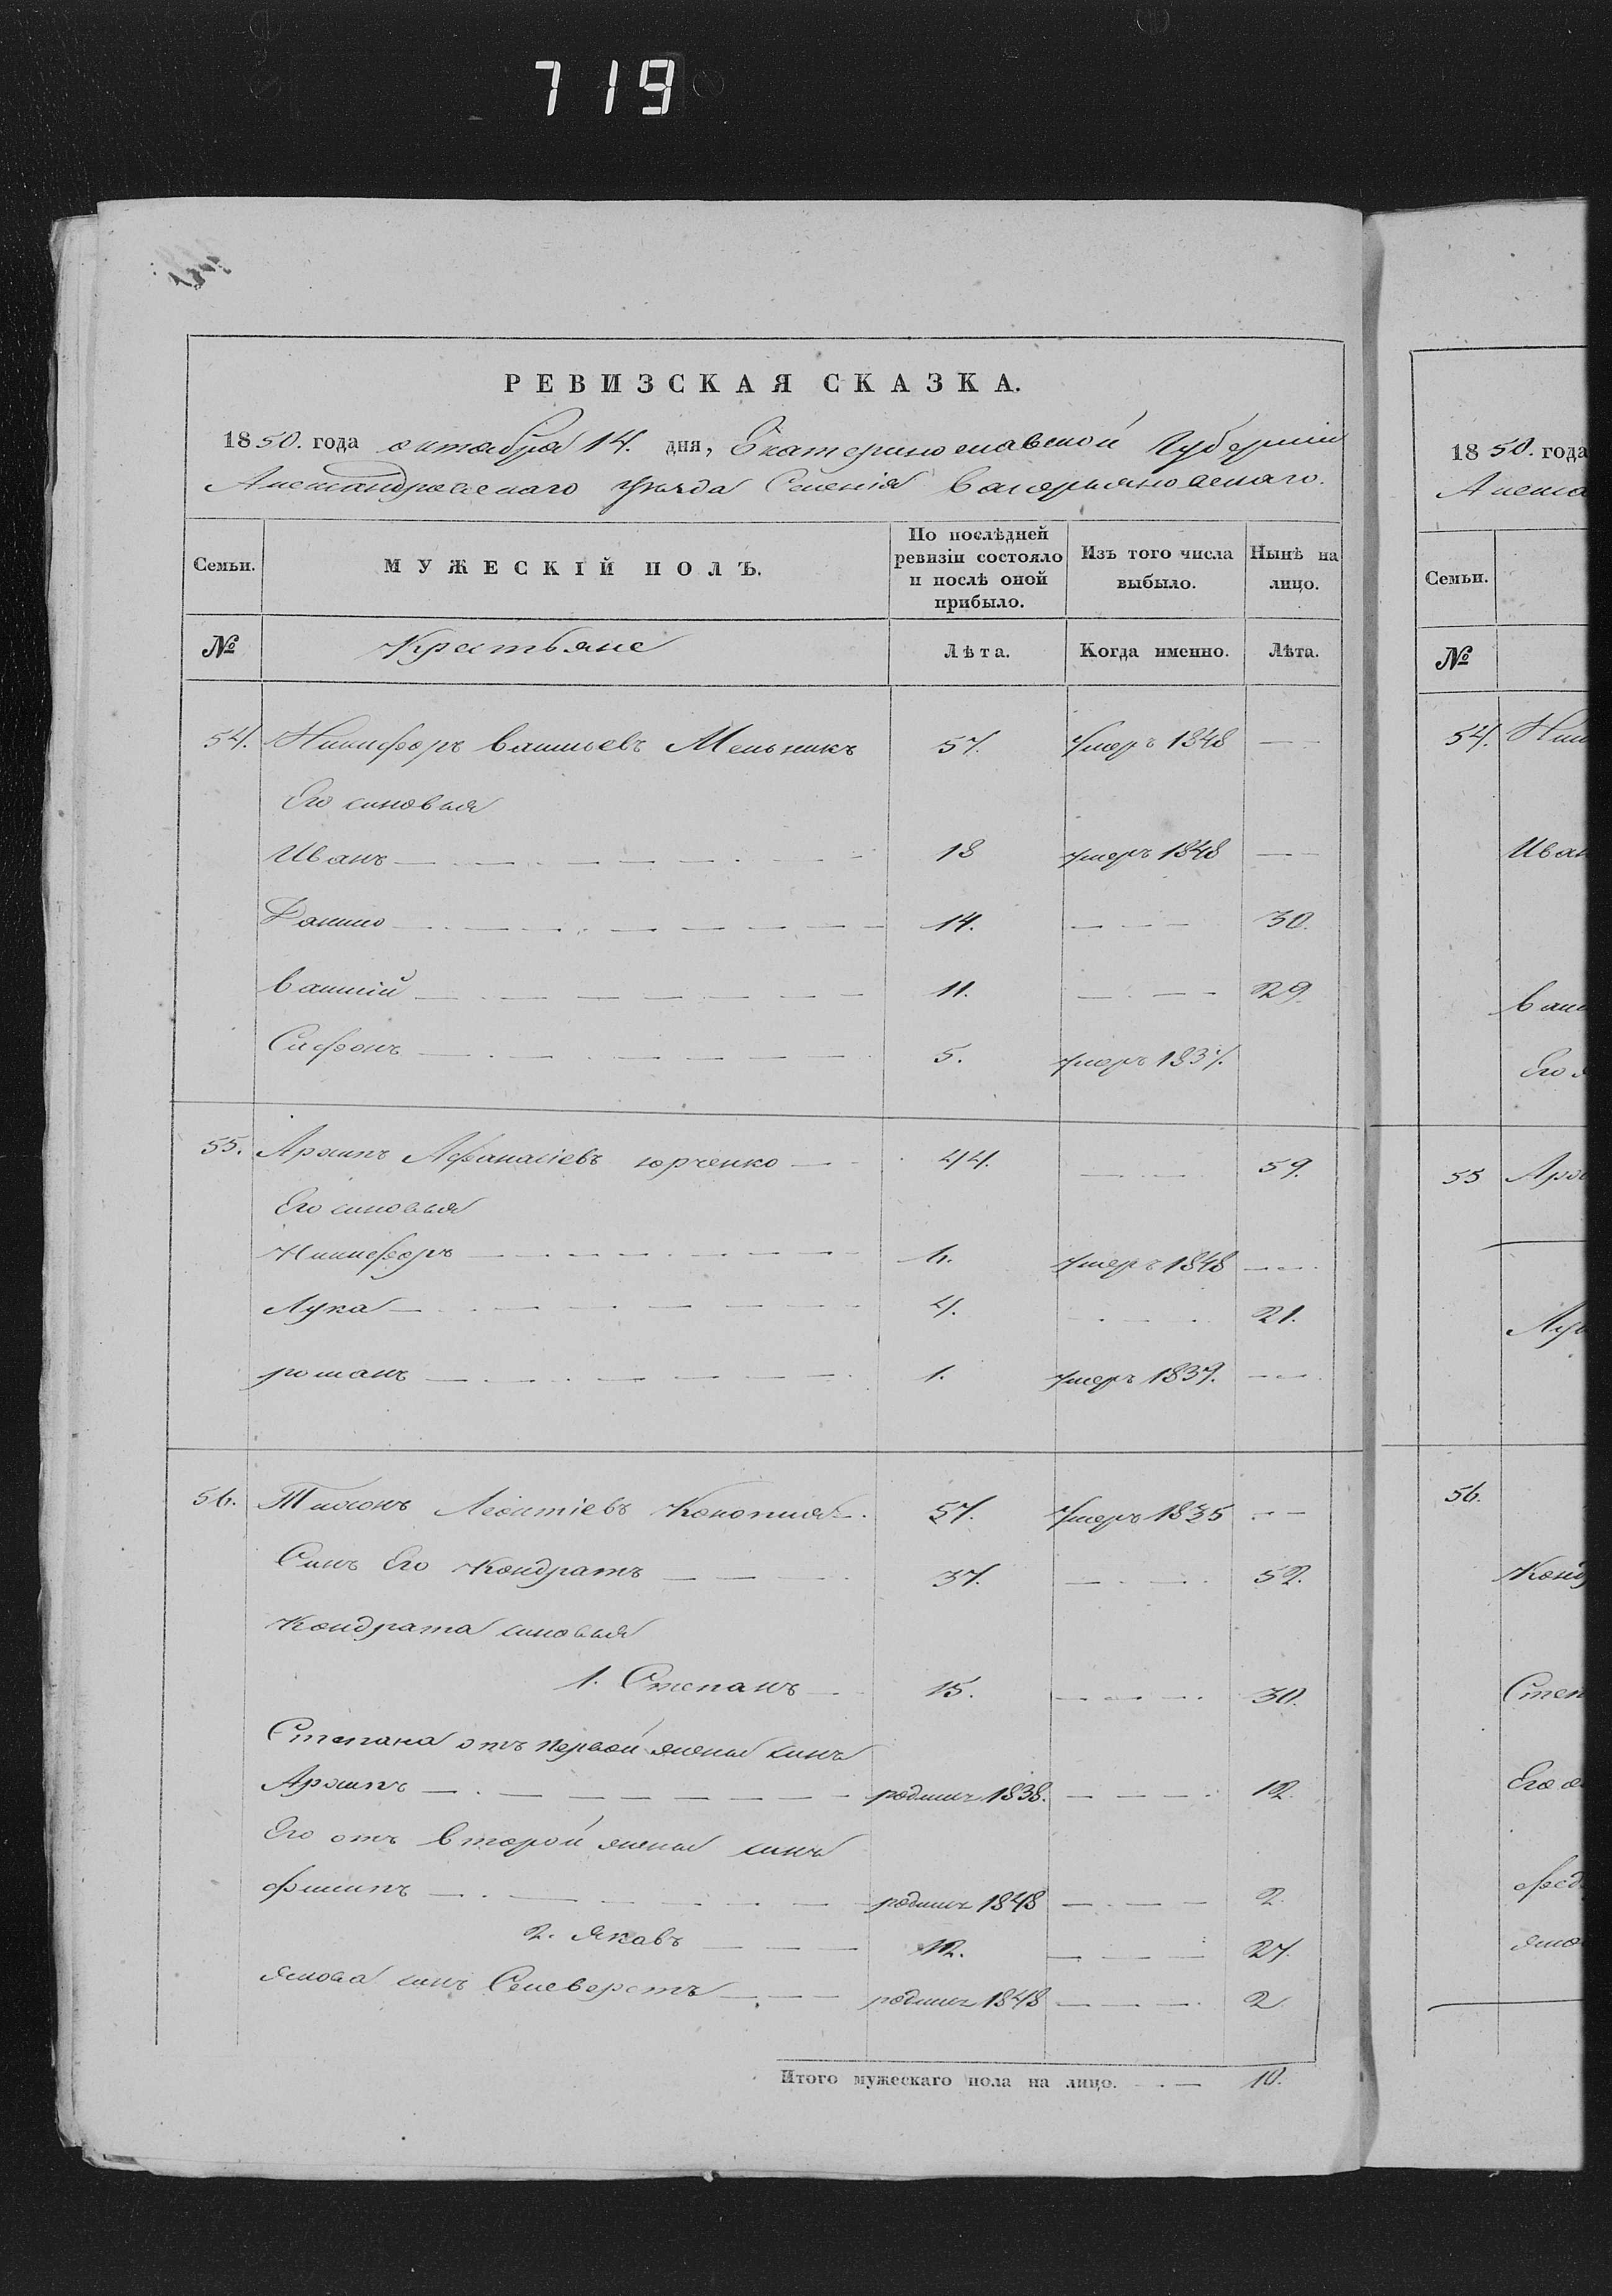 719
РЕВИЗСКАЯ СКАЗКА.
1850. года октября 14. дня, Екатеринославской Губерніи
Александровскаго уѣзда Селенія Валерьяновскаго.
Семьи. МУЖЕСКІЙ ПОЛЪ. По послѣдней ревизіи состояло и послѣ оной прибыло. Изъ того числа выбыло. Нынѣ на лицо.
№ Крестьяне Лѣта. Когда именно. Лѣта.
54. Никифоръ Васильевъ Мельникъ 57. Умеръ 1848 —
Его сыновья
Иванъ 18 умеръ 1848 —
Данило 14. — 30.
Василій 11. — 29
Сафонъ 5. умеръ 1837.
55. Архипъ Афанасіевъ Юрченко 44. — 59.
Его сыновья
Никифоръ 6. умеръ 1848 —
Лука 4. — 21.
романъ 1. умеръ 1837. —
56. Тихонъ Леонтіевъ Конопля 57. Умеръ 1835 —
Сынъ Его Кондратъ 37. — 52.
Кондрата сыновья
1. Степанъ 15. — 30.
Степана отъ первой жены сынъ
Архипъ родился 1838. — 12.
Его отъ второй жены сынъ
филипъ родился 1848 — 2.
2. Яковъ 12. — 27.
Якова сынъ Селеверстъ родился 1848 — 2
Итого мужескаго пола на лицо. — 10.
1850. года
Семьи.
№
54.
Иван
55
56.
Степ